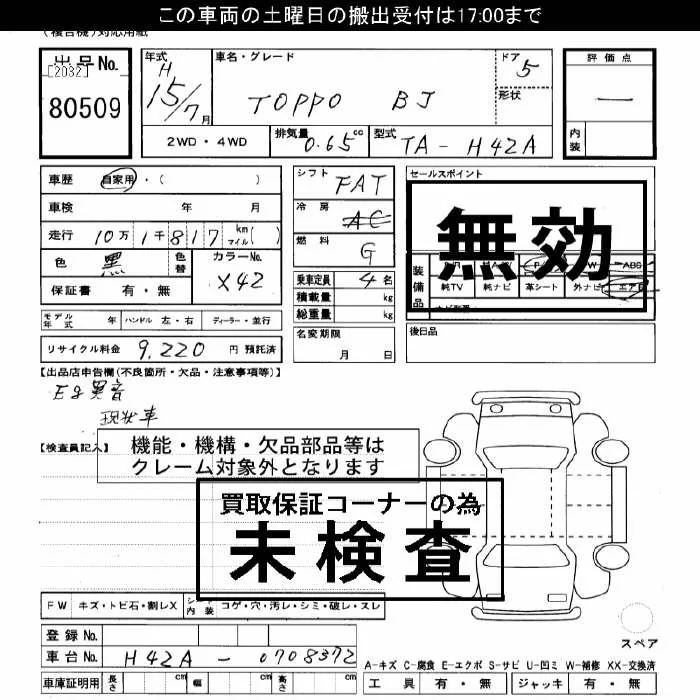 この車両の土曜日の搬出受付は17:00まで
(複合機)対応用紙
出品No.
[2032]
80509
年式
H
15/7月
車名・グレード
TOPPO BJ
ドア
5
形状
評価点
一
内装
2WD・4WD
排気量 0.65cc
型式 TA-H42A
車歴 自家用・( )
車検 年 月
走行 10万1千817 km マイル( )
色 黒 色替
カラーNo.
X42
保証書 有・無
シフト FAT
冷房 AC
燃料 G
乗車定員 4名
積載量 kg
総重量 kg
セールスポイント
無効
装備品
ABS
純TV 純ナビ 革シート 外ナビ エアB
モデル年式 年 ハンドル 左・右 ディーラー・並行
名変期限
月 日
後日品
リサイクル料金 9,220 円 預託済
【出品店申告欄(不良箇所・欠品・注意事項等)】
Eg異音
現状車
【検査員記入】
機能・機構・欠品部品等は
クレーム対象外となります
買取保証コーナーの為
未検査
FW キズ・トビ石・割レX シート内装 コゲ・穴・汚レ・シミ・破レ・スレ
スペア
登録No.
車台No. H42A-0708372
A-キズ C-腐食 E-エクボ S-サビ U-凹ミ W-補修 XX-交換済
車庫証明用 長さ cm 幅 cm 高さ cm
工具 有・無 ジャッキ 有・無